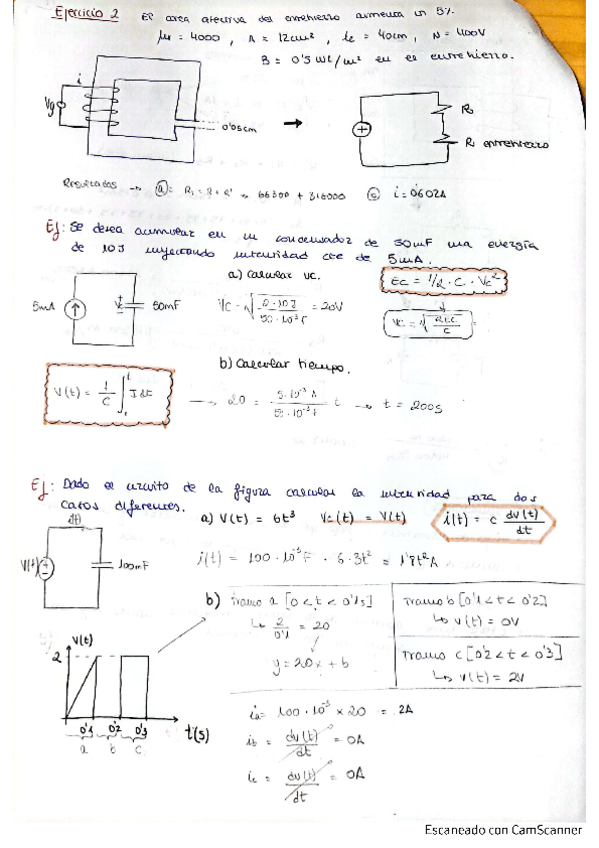 Ejercicio 2 El area efectiva del entrehierro aumenta un 5%.
μr = 4000 , A = 12cm², lc = 40cm, N = 400V
B = 0'5 wb/m² en el entrehierro.
i
Vg
0'05cm
R
R entrehierro
Resultados → a = R + R' 66300 + 316000 c i = 0'602A
Ej: Se desea acumular en un condensador de 50mF una energía
de 10J inyectando intensidad cte de 5mA.
a) Calcular Vc.
Ec = 1/2 · C · Vc²
5mA
Vc
50mF
Vc = √(2·10J / 50·10⁻³F) = 20V
Vc = √(2Ec / C)
b) Calcular tiempo.
V(t) = 1/C ∫ I dt
→ 20 = (5·10⁻³A / 50·10⁻³F) t → t = 200s
Ej: Dado el circuito de la figura calcular la intensidad para dos
casos diferentes.
a) V(t) = 6t³ Vc(t) = V(t)
i(t) = c dv(t)/dt
V(t)
100mF
i(t) = 100·10⁻³F · 6·3t² = 1'8t²A
b) Tramo a [0<t<0'1s]
↳ 2/0'1 = 20
y = 20x + b
Tramo b [0'1<t<0'2]
↳ v(t) = 0V
Tramo c [0'2<t<0'3]
↳ v(t) = 2V
V(t)
2
0'1 0'2 0'3 t(s)
a b c
ia = 100·10⁻³ × 20 = 2A
ib = dv(t)/dt = 0A
ic = dv(t)/dt = 0A
Escaneado con CamScanner